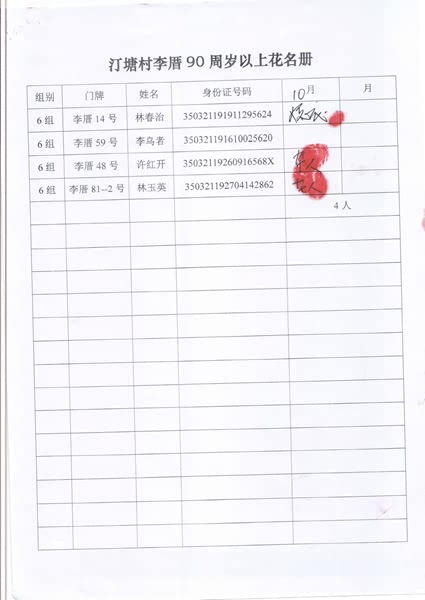 汀塘村李厝90周岁以上花名册
组别 门牌 姓名 身份证号码 10月 月
6组 李厝14号 林春治 350321191911295624
6组 李厝59号 李乌者 350321191610025620
6组 李厝48号 许红开 35032119260916568X 本人
6组 李厝81--2号 林玉英 350321192704142862 本人
4人